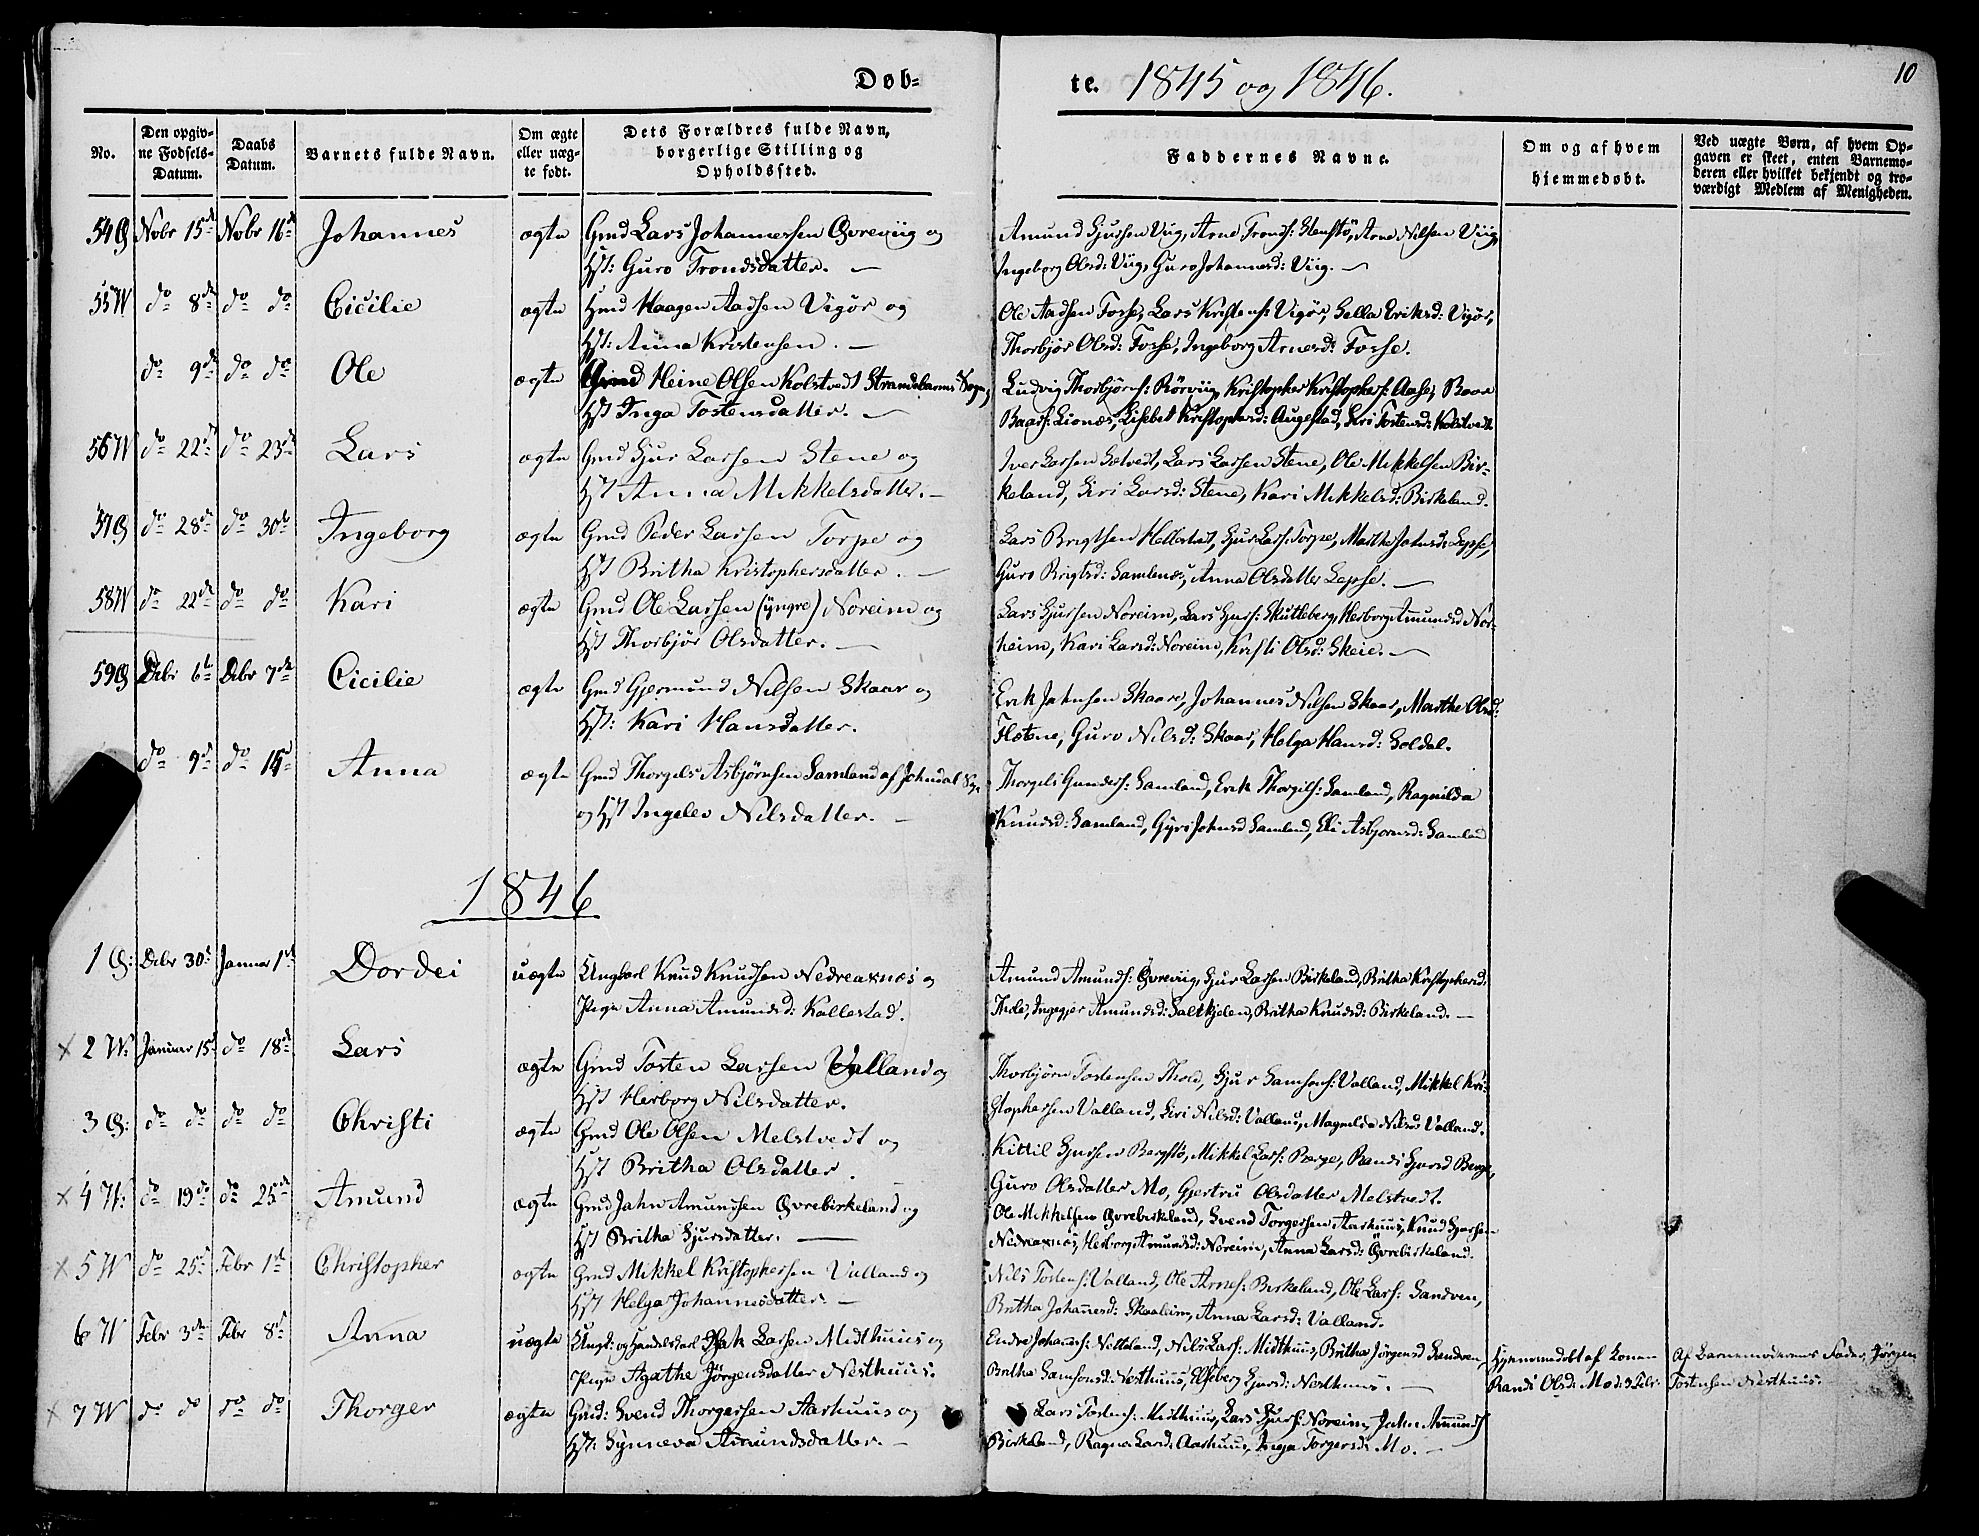 Døb-
te. 1845 og 1846.
10
No.
Den opgiv-
ne Fødsels-
Datum.
Daabs
Datum.
Barnets fulde Navn.
Om ægte
eller uæg-
te født.
Dets Forældres fulde Navn,
borgerlige Stilling og
Opholdssted.
Faddernes Navne.
Om og af hvem
hjemmedøbt.
Ved uægte Børn, af hvem Op-
gaven er skeet, enten Barnemo-
deren eller hvilket bekjendt og tro-
værdigt Medlem af Menigheden.
54 Nobr 15de Nobr 16de Johannes ægte Gmd Lars Johannessen Øvreviig og
Hst: Guro Trondsdatter. —
Amund Sjursen Viig, Arne Tronds: Stenstø, Arne Nilsen Viig,
Ingeborg Olsd: Viig, Guro Johannesd: Viig. —
55 W do 8de do do Cicilie ægte Hmd Haagen Aadsen Vigør og
Hst: Anna Kristensen. —
Ole Aadsen Fosse, Lars Kristens: Vigør, Sella Eriksd: Vigør,
Thorbjør Olsd: Fosse, Ingeborg Arnesd: Fosse.
do 9de do do Ole ægte Gmd Heine Olsen Kolstvedt Strandebarms Sogn,
Hst Inga Tostensdatter. —
Ludvig Thorbjørns: Rørviig, Kristopher Kristophers: Aase, Baar
Baars: Lionæs, Lisebet Kristophersd: Augestad, Siri Tostensd: Kolstvedt
56 W do 22de do 23de Lars ægte Gmd Sjur Larsen Stene og
Hst Anna Mikkelsdatter. —
Iver Larsen Sætvedt, Lars Larsen Stene, Ole Mikkelsen Bir-
keland, Siri Larsd: Stene, Kari Mikkelsd: Birkeland.
57 do 28de do 30te Ingeborg ægte Gmd Peder Larsen Torpe og
Hst Britha Kristophersdatter. —
Lars Brigtsen Hellestad, Sjur Lars: Torpe, Marthe Johnsd: Lepse,
Guro Brigtsd: Samlenæs, Anna Olsdatter Lepse. —
58 W do 22de do do Kari ægte Gmd Ole Larsen (yngre) Noreim og
Hst Thorbjør Olsdatter. —
Lars Sjursen Noreim, Lars Sjurs: Skutleberg, Herborg Amundsd Nor-
heim, Kari Larsd: Noreim, Kristi Olsd: Skeie. —
59 Debr 6te Debr 7de Cicilie ægte Gmd Gjermund Nilsen Skaar og
Hst: Kari Hansdatter.
Erik Johnsen Skaare, Johannes Nilsen Skaar, Marthe Olsd:
Flotene, Guro Nilsd: Skaar, Helga Hansd: Soldal.
do 9de do 14de Anna ægte Gmd Thorgels Asbjørnsen Samland af Johndal Sogn
og Hst Ingelev Nilsdatter. —
Thorgels Gunders: Samland, Erik Thorgils: Samland, Ragnilda
Knudsd: Samland, Gyri Johnsd Samland, Eli Asbjørnsd: Samland
1846
1 Debr 30te Januar 1ste Dordei uægte Ungkarl Knud Knudsen Nedreaxnæs og
Pige Anna Amundsd: Kollestad.
Amund Amunds: Øvreviig, Sjur Larsen Birkeland, Britha Kristophersd:
Thole, Ingegjer Amundsd: Saltkjelen, Britha Knudsd: Birkeland. —
x 2 W: Januar 15de do 18de Lars ægte Gmd Tosten Larsen Valland og
Hst Herborg Nilsdatter.
Thorbjørn Tostensen Thole, Sjur Samsons: Valland, Mikkel Kri-
stophersen Valland, Siri Nilsd: Valland, Magnilda Nilsd Valland.
3 do do do do Christi ægte Gmd Ole Olsen Melstvedt og
Hst Britha Olsdatter.
Kittil Sjursen Bergstø, Mikkel Lars: Berge, Randi Sjursd Berge,
Guro Olsdatter Mo, Gjertru Olsdatter Melstvedt.
x 4 W: do 19de do 25de Amund ægte Gmd John Amundsen Øvrebirkeland og
Hst Britha Sjursdatter. —
Ole Mikkelsen Øvrebirkeland, Svend Torgersen Aarhuus, Knud Sjursen
Nedreaxnæs, Herborg Amundsd: Noreim, Anna Larsd: Øvrebirkeland.
x 5 W do 25de Febr 1ste Christopher ægte Gmd Mikkel Kristophersen Valland og
Hst Helga Johannesdatter. —
Nils Tostens: Valland, Ole Arnes: Birkeland, Ole Lars: Sandven,
Britha Johannesd: Skaaleim, Anna Larsd: Valland.
6 W Febr 3de Febr 8de Anna uægte Ungk: og Handelskarl Isak Larsen Midthuus og
Pige Agathe Jørgensdatter Nesthuus.
Endre Johanns: Netteland, Nils Lars: Midthuus, Britha Jørgensd Sandven,
Britha Samsonsd: Nesthuus, Elseberg Sjursd: Nesthuus. —
Hjemmedøbt af Konen
Randi Olsd: Mo d: 3 Febr.
Af Barnemoderens Fader, Jørgen
Tostensen Nesthuus.
x 7 W do do do do Thorger ægte Gmd: Svend Thorgersen Aarhuus og
Hst: Synneva Amundsdatter. —
Lars Tostens: Midthuus, Lars Sjurs: Noreim, John Amunds
Birkeland, Ragna Larsd: Aarhuus, Inga Torgersd: Mo. —